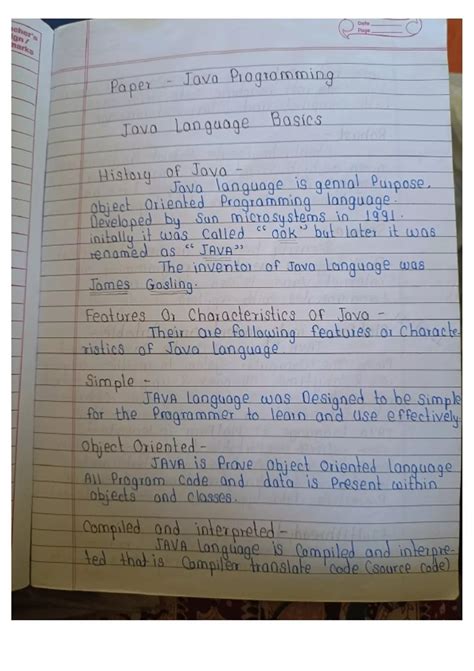 Date
Page
cher's
ign /
marks
Paper - Java Programming
Java Language Basics
History of Java -
Java language is genral Purpose,
object Oriented Programming language.
Developed by Sun microsystems in 1991.
initally it was Called "oak" but later it was
renamed as "JAVA"
The inventor of Java Language was
James Gosling.
Features Or Characteristics of Java -
Their are following features or Characte-
ristics of Java Language
Simple -
JAVA language was Designed to be simple
for the Programmer to learn and use effectively
Object Oriented -
JAVA is Prove object Oriented language
All Program Code and data is Present within
objects and classes.
Compiled and interpreted -
JAVA language is Compiled and interpre-
ted that is Compiler translate code (source code)